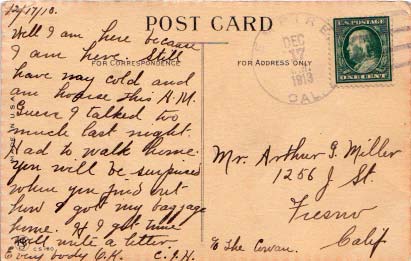 12/17/10.
POST CARD
Well I am here because
I am here. Still
FOR CORRESPONDENCE
FOR ADDRESS ONLY
have my cold and
am hoarse this A.M.
Guess I talked too
much last night.
Had to walk home.
You will be surprised
when you find out
how I got my baggage
home. If I get time
Will write a letter.
body O.K. C.J.H.
EMPIRE
DEC
17
CAL.
U.S. POSTAGE
ONE CENT
Mr. Arthur G. Miller
1256 J St.
Fresno
Calif
℅ The Cowan.
MADE IN U.S.A.